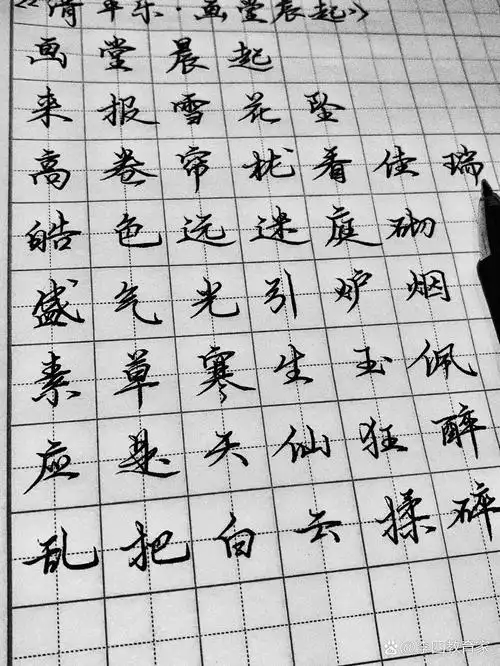 《清平乐·画堂晨起》
画堂晨起
来报雪花坠
高卷帘栊看佳瑞
皓色远迷庭砌
盛气光引炉烟
素草寒生玉佩
应是天仙狂醉
乱把白云揉碎